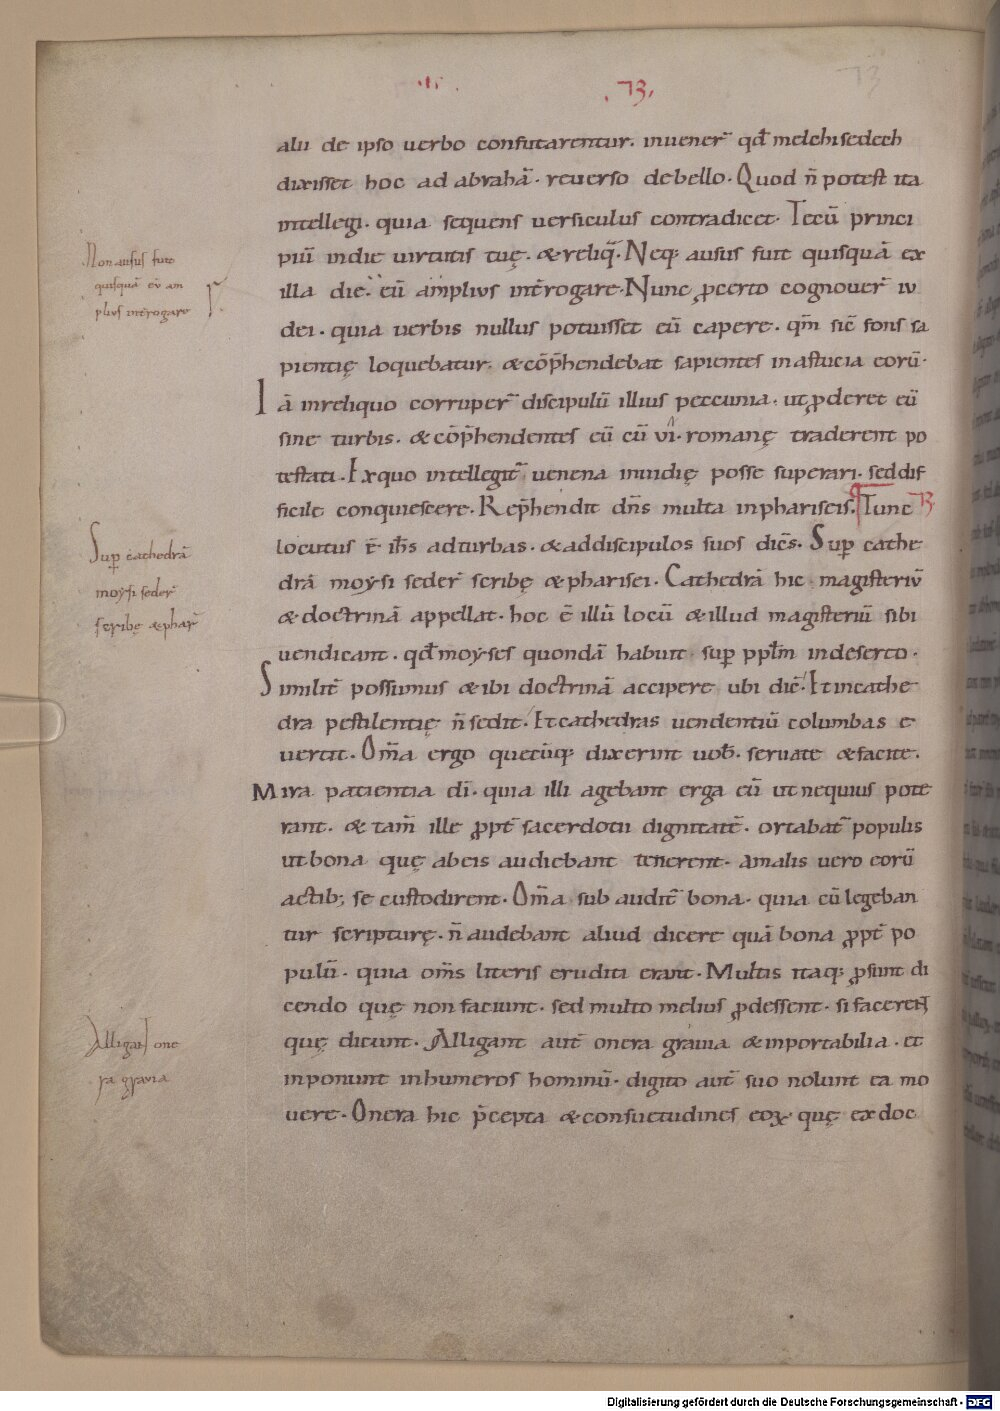 ·II·
.73.
73
alii de ipso uerbo confutarentur. inuener̄ qđ melchisedech
dixisset hoc ad abrahā. reuerso de bello. Quod n̄ potest ita
intellegi. quia sequens uersiculus contradicet. Tecū princi
piū in die uirtutis tuę. & reliq̄. Neq; ausus fuit quisquā ex
illa die. eū amplius int̄rogare. Nunc ꝓcerto cognouer̄ iu
dei. quia uerbis nullus potuisset eū capere. qm̄ sic̄ fons sa
pientię loquebatur. & cōp̄hendebat sapientes in astucia eorū.
Iā in reliquo corruper̄ discipulū illius peccunia. ut ꝓderet eū
sine turbis. & cōp̄hendentes eū cū ui. romanę traderent po
testati. Ex quo intellegit̄ uenena inuidię posse superari. sed dif
ficile conquiescere. Rep̄hendit dn̄s multa in phariseis. Tunc
73
locutus ē ih̄s ad turbas. & ad discipulos suos dic̄s. Suꝑ cathe
drā moysi seder̄ scribę & pharisei. Cathedrā hic magisteriū
& doctrinā appellat. hoc ē illū locū & illud magisteriū sibi
uendicant. qđ moyses quondā habuit suꝑ ppl̄m in deserto.
Similit̄ possumus & ibi doctrinā accipere ubi dic̄. Et in cathe
dra pestilentię n̄ sedit. Et cathedras uendentiū columbas e
uertit. Om̄a ergo quecūq; dixerint uob̄. seruate & facite.
Mira patientia dī. quia illi agebant erga eū ut nequius pote
rant. & tam̄ ille ꝓpt̄ sacerdotii dignitatē. ortabat̄ populis
ut bona quę ab eis audiebant tenerent. a malis uero eorū
actib; se custodirent. Om̄a sub audit̄ bona. quia cū legeban
tur scripturę. n̄ audebant aliud dicere quā bona ꝓpt̄ po
pulū. quia om̄s literis eruditi erant. Multis itaq; ꝓsunt di
cendo quę non faciunt. sed multo melius ꝓdessent. si facerent
quę dicunt. Alligant aut̄ onera grauia & inportabilia. et
inponunt in humeros hominū. digito aut̄ suo nolunt ea mo
uere. Onera hic p̄cepta & consuetudines eoꝝ. quę ex doc
Non ausus fuit
quisquā eū am
plius int̄rogare
Suꝑ cathedrā
moysi seder̄
scribę & phar̄
Alligant one
ra grauia
Digitalisierung gefördert durch die Deutsche Forschungsgemeinschaft - DFG